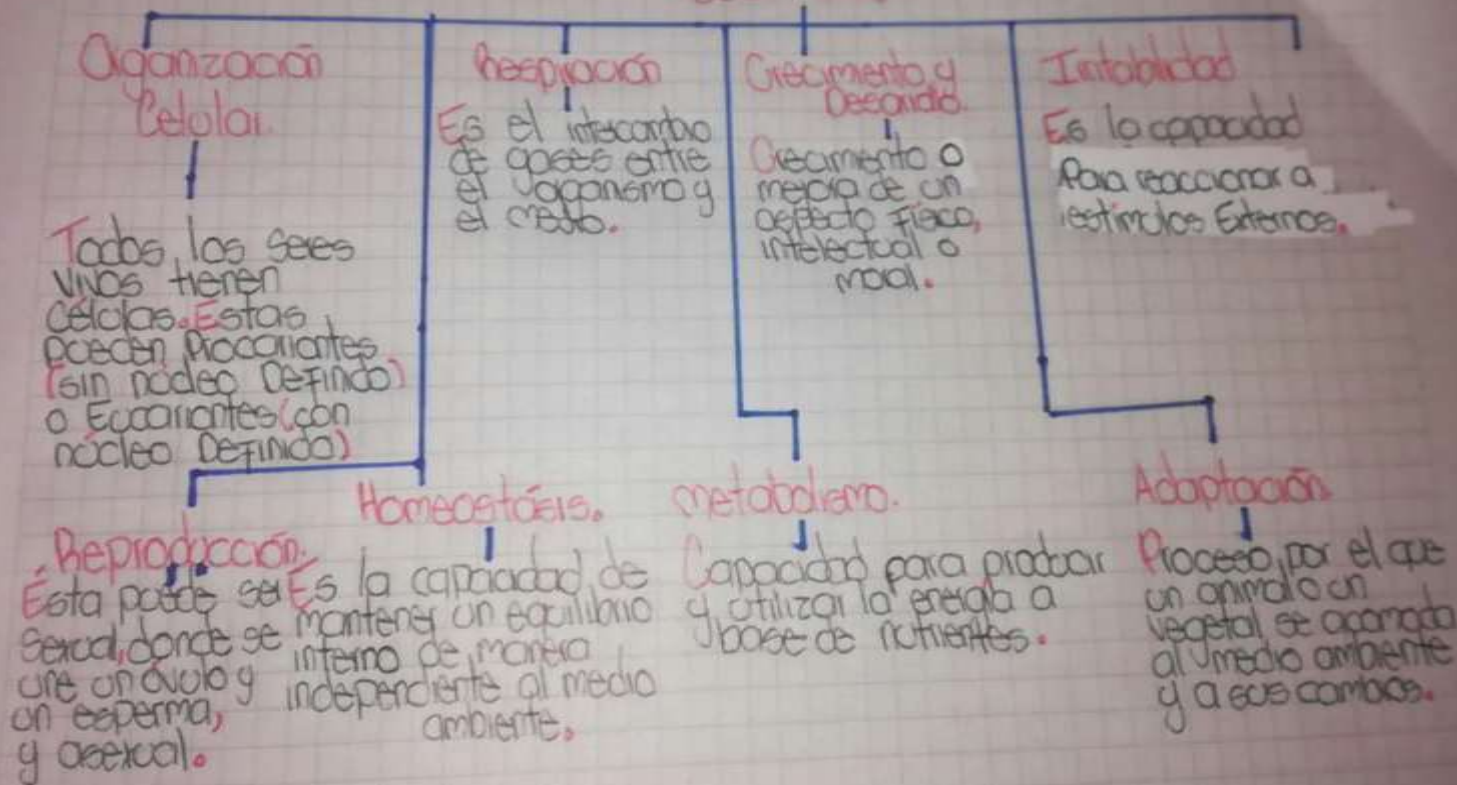 Oganización
Celular.
Todos los seres
vivos tienen
células. Estas
pueden Procariontes
(sin núcleo Definido)
o Eucariontes (con
núcleo Definido)
Respiración
Es el intercambio
de gases entre
el organismo y
el medio.
Crecimiento y
Desarrollo.
Crecimiento o
mejora de un
aspecto físico,
intelectual o
moral.
Irritabilidad
Es la capacidad
Para reaccionar a
estimulos Externos.
Reproducción.
Esta puede ser
sexual, donde se
une un óvulo y
un esperma,
y asexual.
Homeostásis.
Es la capacidad de
mantener un equilibrio
interno de manera
independiente al medio
ambiente.
metabolismo.
Capacidad para producir
y utilizar la energía a
base de nutrientes.
Adaptación
Proceso por el que
un animal o un
vegetal se acomoda
al medio ambiente
y a sus cambios.